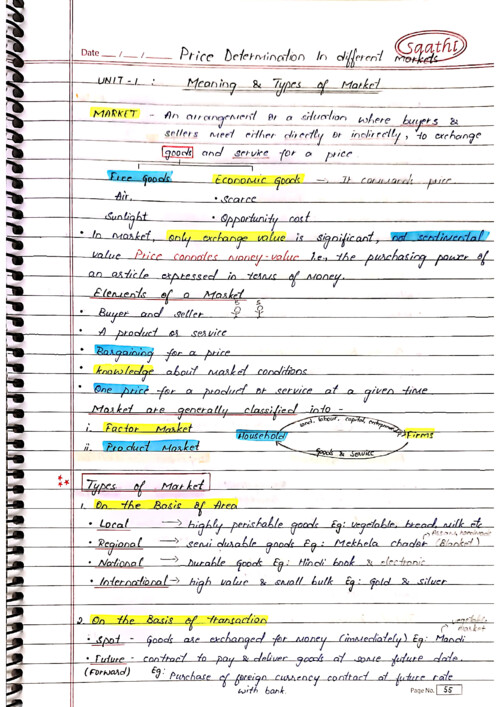 Saathi
Date __/__/__ Price Determination In different markets
UNIT-1 : Meaning & Types of Market
MARKET - An arrangement or a situation where buyers &
sellers meet either directly or indirectly, to exchange
goods and service for a price
Free Goods Economic Goods - It commands price
Air, • scarce
Sunlight • Opportunity cost
• In market, only exchange value is significant, not sentimental
value Price connotes money-value i.e, the purchasing power of
an article expressed in terms of money.
Elements of a Market
• Buyer and seller B S
• A product or service
• Bargaining for a price
• knowledge about market conditions
• One price for a product or service at a given time
Market are generally classified into -
i. Factor Market
land, labour, capital, entrepreneur
ii. Product Market Household Firms
Goods & Service
Types of Market
1. On the Basis of Area
• Local → highly perishable goods Eg: vegetable, bread, milk etc
• Regional → semi durable goods Eg: Mekhela chador (Blanket)
• National → Durable goods Eg: Hindi book & electronic
• International → high value & small bulk Eg: Gold & silver
2. On the Basis of transaction
vegetable market
• Spot - Goods are exchanged for money (immediately) Eg: Mandi
• Future - contract to pay & deliver goods at some future date.
(Forward) Eg: Purchase of foreign currency contract at future rate
with bank.
Page No. 55